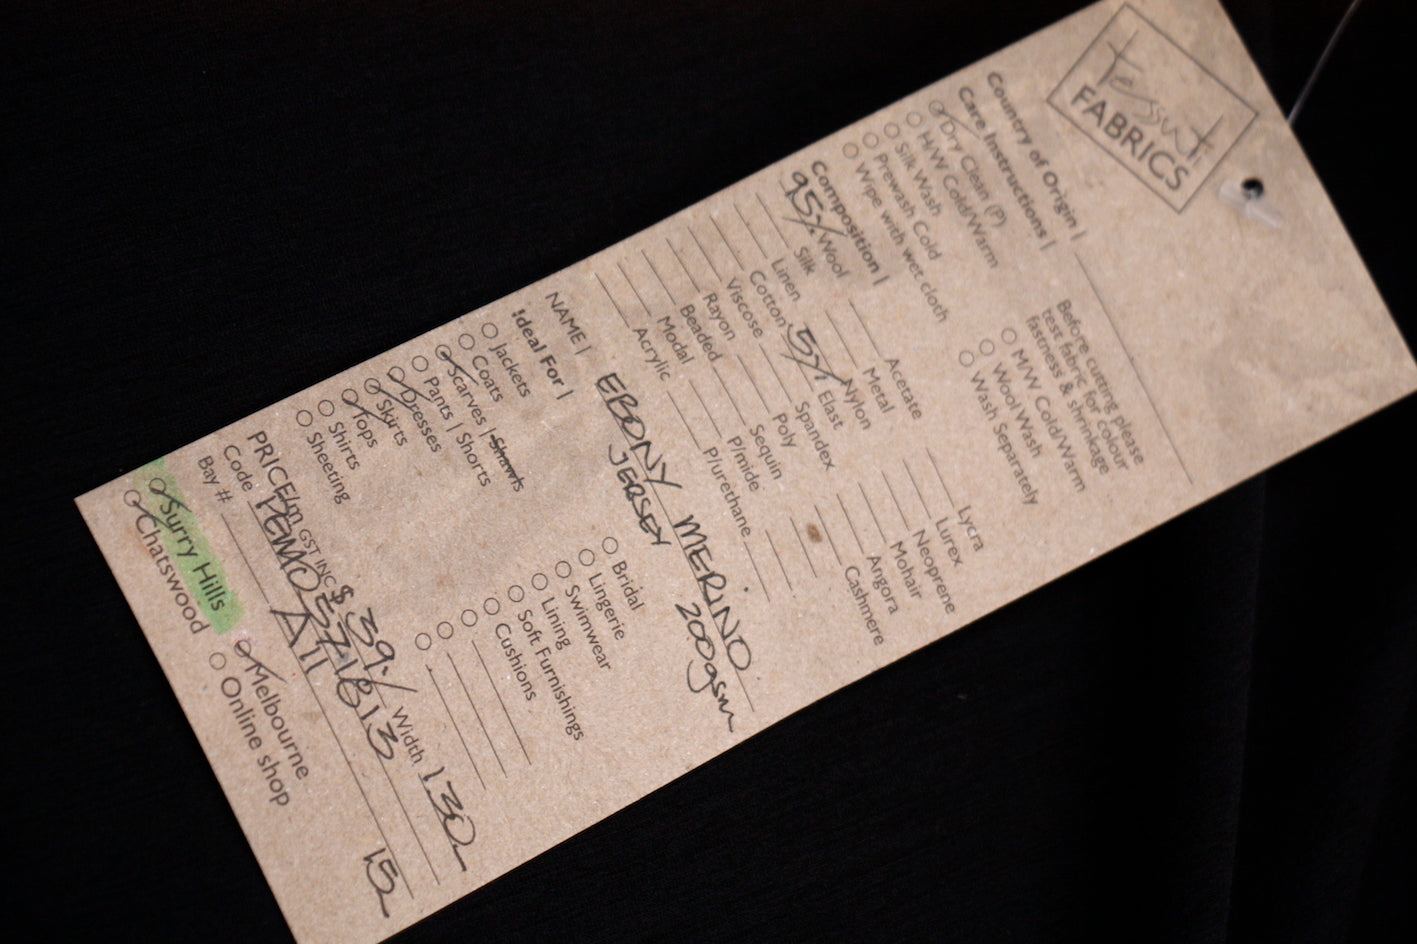 tessuti
FABRICS
Country of Origin |
Care Instructions |
Dry Clean (P)
H/W Cold/Warm
Silk Wash
Prewash Cold
Wipe with wet cloth
Before cutting please
test fabric for colour
fastness & shrinkage
M/W Cold/Warm
Wool Wash
Wash Separately
Composition |
95% Wool
Silk
Linen
Cotton
Viscose
Rayon
Beaded
Modal
Acrylic
Acetate
Metal
Nylon
5% Elast
Spandex
Poly
Sequin
P/mide
P/urethane
Lycra
Lurex
Neoprene
Mohair
Angora
Cashmere
NAME | EBONY MERINO
JERSEY 200gsm
Ideal For |
Jackets
Coats
Scarves | Shawls
Pants | Shorts
Dresses
Skirts
Tops
Shirts
Sheeting
Bridal
Lingerie
Swimwear
Lining
Soft Furnishings
Cushions
PRICE/m GST INC $ 39 Width 130
Code
Bay # A11 15
Surry Hills
Melbourne
Chatswood
Online shop